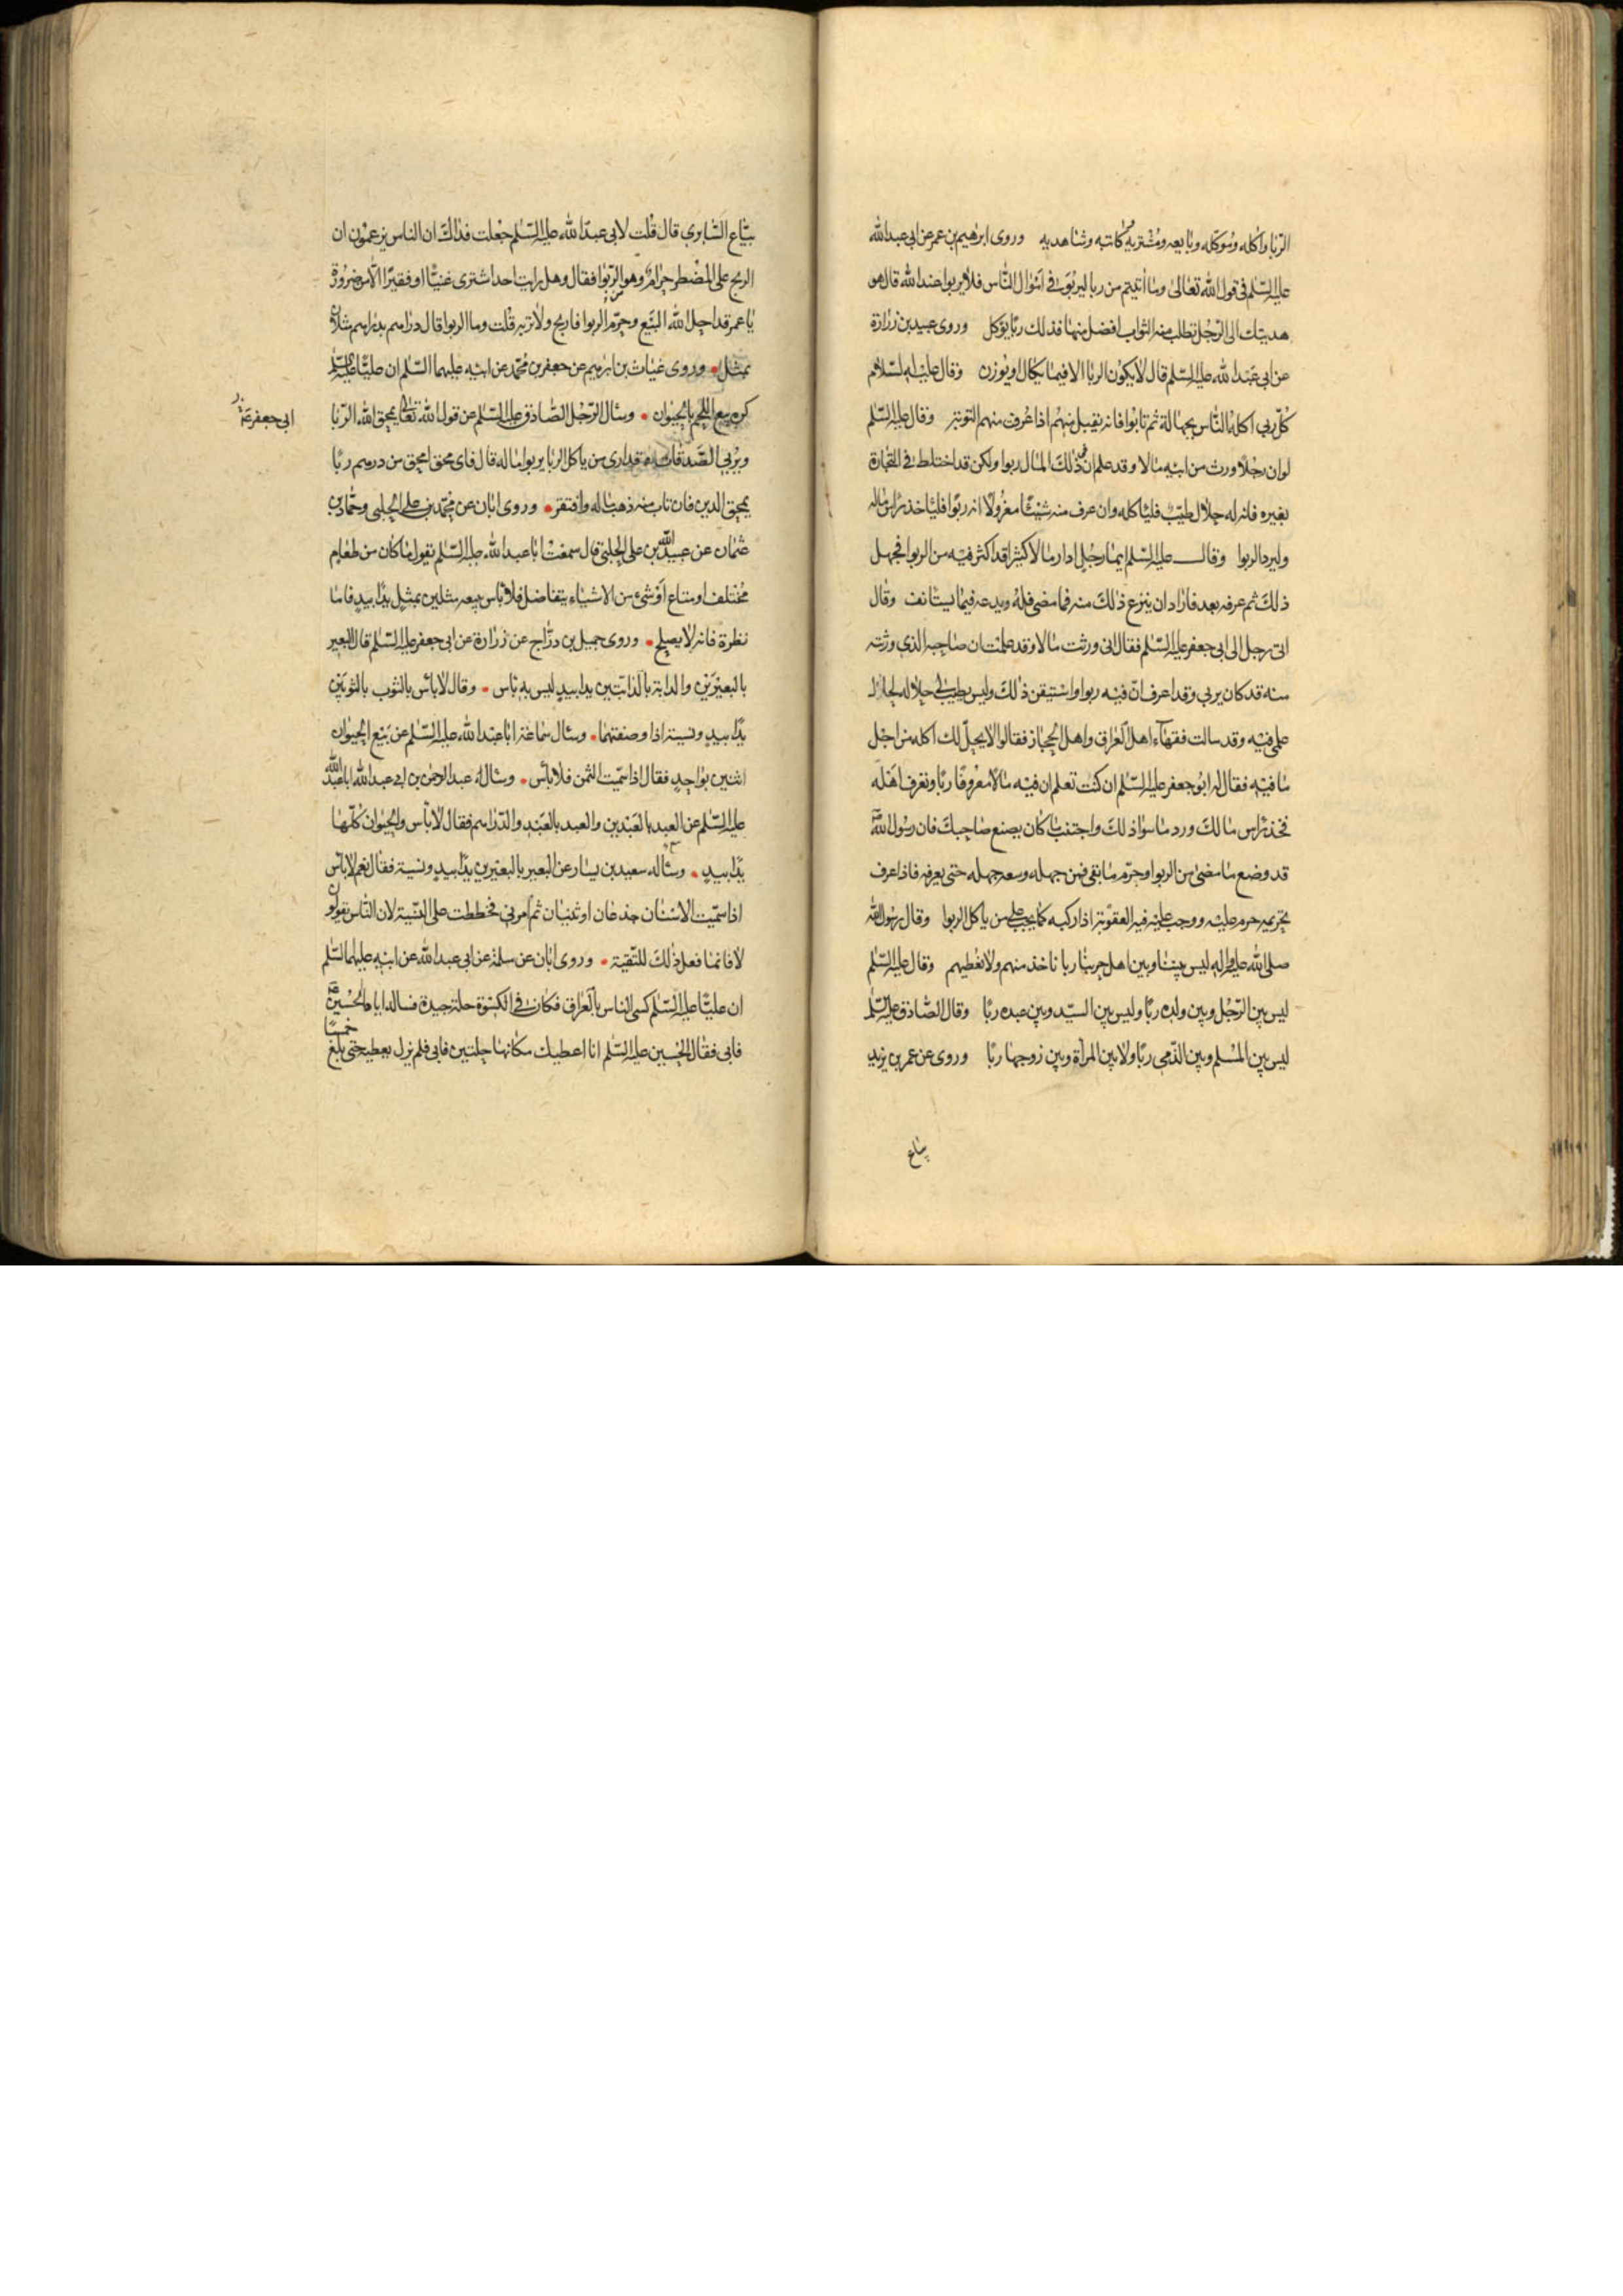 الربا وآكله وموكله وبايعه ومشتريه وكاتبه وشاهديه وروى ابرهيم بن عمر عن ابي عبد الله
عليه السلم فى قول الله تعالى وما اتيتم من ربا ليربوا فى اموال الناس فلا يربوا عند الله قال هو
هديتك الى الرجل تطلب منه الثواب افضل منها فذلك ربا يؤكل وروى عبيد بن زرارة
عن ابى عبد الله عليه السلم قال لا يكون الربا الا فيما يكال او يوزن وقال عليه السلام
كل ربى اكله الناس بجهالة ثم تابوا فانه يقبل منهم اذا عرف منهم التوبة وقال عليه السلم
لو ان رجلا ورث من ابيه مالا وقد علم ان فى ذلك المال ربوا ولكن قد اختلط فى التجارة
بغيره فانه له حلال طيب فليأكله وان عرف منه شيئا معزولا انه ربوا فلياخذ راس ماله
وليرد الربوا وقال عليه السلم ايما رجل ادار مالا كثيرا قد اكثر فيه من الربوا فجهل
ذلك ثم عرفه بعد فاراد ان ينزع ذلك منه فما مضى فله ويدعه فيما يستانف وقال
اتى رجل الى ابى جعفر عليه السلم فقال انى ورثت مالا وقد علمت ان صاحبه الذى ورثته
منه قد كان يربى وقد اعرف ان فيه ربوا واستيقن ذلك وليس يطيب لى حلاله لحال
علمى فيه وقد سالت فقهاء اهل العراق واهل الحجاز فقالوا لا يحل لك اكله من اجل
ما فيه فقال له ابو جعفر عليه السلم ان كنت تعلم ان فيه مالا معروفا ربا وتعرف اهله
فخذ راس مالك ورد ما سوا ذلك واجتنب ما كان يصنع صاحبك فان رسول الله
قد وضع ما مضى من الربوا وحرم ما بقى فمن جهله وسعه جهله حتى يعرفه فاذا عرف
تحريمه حرم عليه ووجب عليه فيه العقوبة اذا ركبه كما يجب على من ياكل الربوا وقال رسول الله
صلى الله عليه واله ليس بيننا وبين اهل حربنا ربا ناخذ منهم ولا نعطيهم وقال عليه السلم
ليس بين الرجل وبين ولده ربا وليس بين السيد وبين عبده ربا وقال الصادق عليه السلم
ليس بين المسلم وبين الذمى ربا ولا بين المرأة وبين زوجها ربا وروى عن عمر بن يزيد
بياع
بياع السابرى قال قلت لابى عبد الله عليه السلم جعلت فداك ان الناس يزعمون ان
الربح على المضطر حرام وهو من الربوا فقال وهل رايت احدا اشترى غنيا او فقيرا الا من ضرورة
يا عمر قد احل الله البيع وحرم الربوا فاربح ولا تربه قلت وما الربوا قال دراهم بدراهم مثلان
بمثل وروى غياث بن ابرهيم عن جعفر بن محمد عن ابيه عليهما السلم ان عليا عليه السلم
كره بيع اللحم بالحيوان وسال الرجل الصادق عليه السلم عن قول الله تعالى يمحق الله الربا
ويربى الصدقات وقد ارى من ياكل الربا يربوا ماله قال فاى محق امحق من درهم ربا
يمحق الدين فان تاب منه ذهب ماله وافتقر وروى ابان عن محمد بن على الحلبى وحماد بن
عثمان عن عبيد الله بن على الحلبى قال سمعت ابا عبد الله عليه السلم يقول ما كان من طعام
مختلف او متاع او شئ من الاشياء يتفاضل فلا باس ببيعه مثلين بمثل يدا بيد فاما
نظرة فانه لا يصلح وروى جميل بن دراج عن زرارة عن ابى جعفر عليه السلم قال البعير
بالبعيرين والدابة بالدابتين يدا بيد ليس به باس وقال لا باس بالثوب بالثوبين
يدا بيد ونسيئة اذا وصفتهما وسال سماعة ابا عبد الله عليه السلم عن بيع الحيوان
اثنين بواحد فقال اذا سميت الثمن فلا باس وساله عبد الرحمن بن ابى عبد الله ابا عبد الله
عليه السلم عن العبد بالعبدين والعبد بالعبد والدراهم فقال لا باس والحيوان كلها
يدا بيد وساله سعيد بن يسار عن البعير بالبعيرين يدا بيد ونسية فقال نعم لا باس
اذا سميت الاسنان جذعان او ثنيان ثم امرنى فخططت على النسية لان الناس يقولون
لا فانما فعل ذلك للتقية وروى ابان عن سلمة عن ابى عبد الله عن ابيه عليهما السلم
ان عليا عليه السلم كسى الناس بالعراق فكان فى الكسوة حلة جيدة فساله اياه الحسين
فابى فقال الحسين عليه السلم انا اعطيك مكانها حلتين فابى فلم يزل يعطيه حتى بلغ خمسا
ابى جعفر